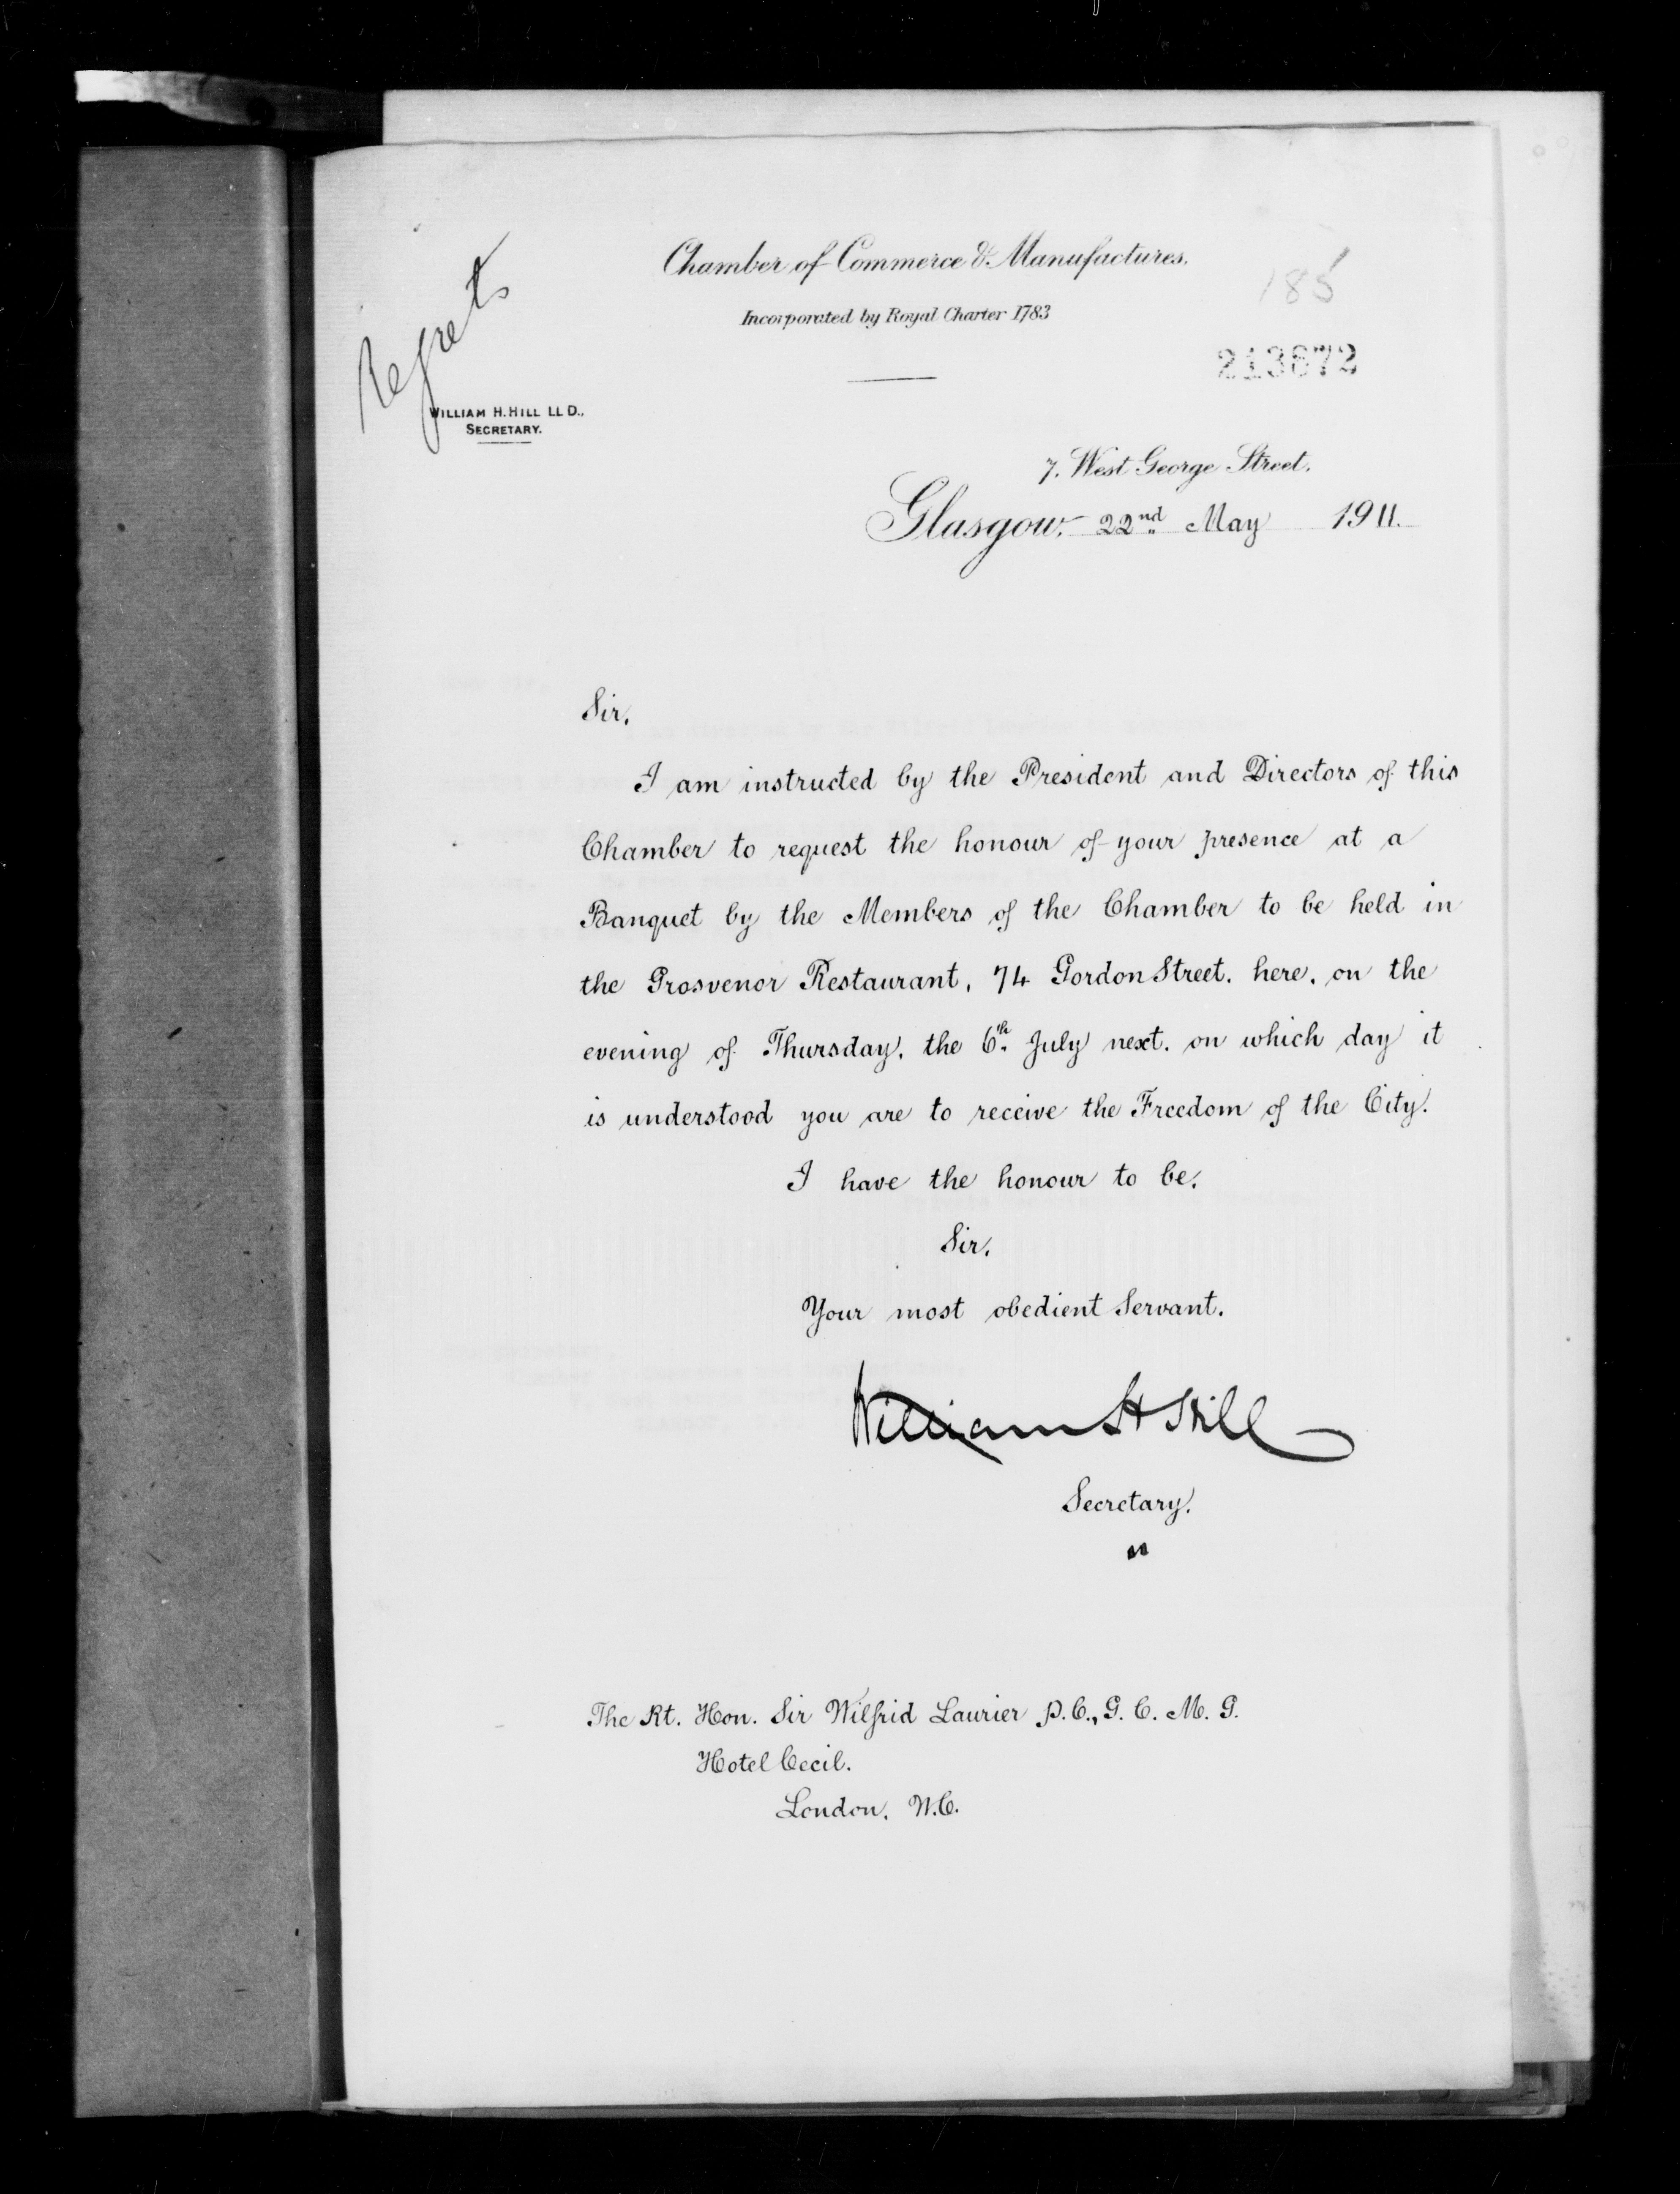 Chamber of Commerce & Manufactures.
Incorporated by Royal Charter 1783
185
213672
Regrets
WILLIAM H. HILL LL D.,
SECRETARY.
7. West George Street.
Glasgow, 22nd May 1911.
Sir,
I am instructed by the President and Directors of this
Chamber to request the honour of your presence at a
Banquet by the Members of the Chamber to be held in
the Grosvenor Restaurant, 74 Gordon Street, here, on the
evening of Thursday, the 6th July next, on which day it
is understood you are to receive the Freedom of the City.
I have the honour to be,
Sir,
Your most obedient Servant,
William H Hill
Secretary.
The Rt. Hon. Sir Wilfrid Laurier P.C., G. C. M. G.
Hotel Cecil,
London, W.C.